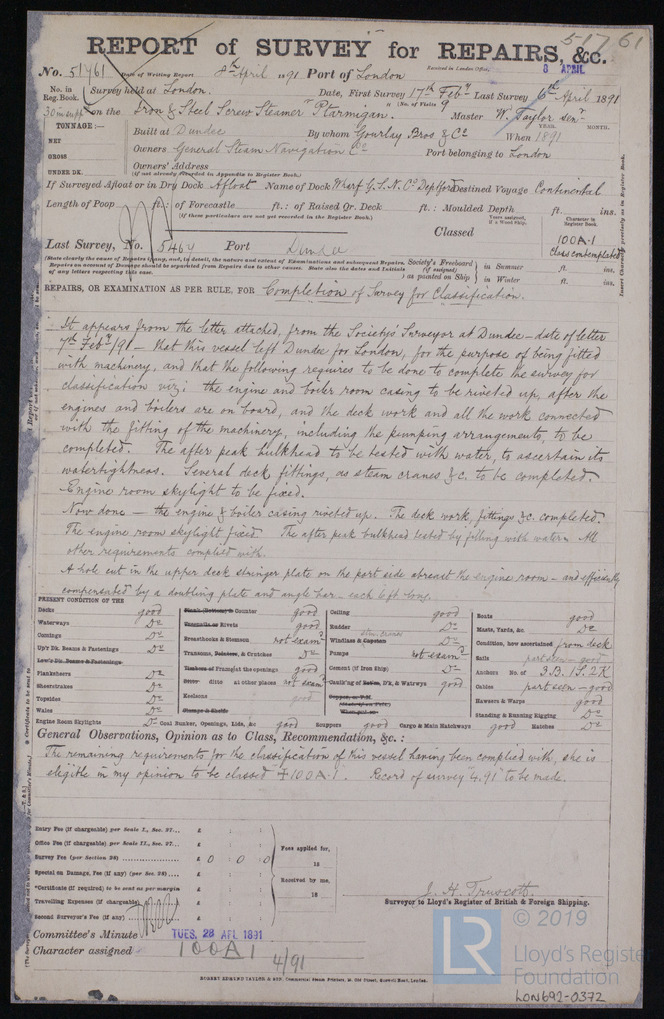 51761
REPORT of SURVEY for REPAIRS, &c.
No. 51761 Date of Writing Report 8th April 1891 Port of London Received in London Office, 8 APRIL
No. in Reg. Book. Survey held at London. Date, First Survey 17th Feby Last Survey 6th April 1891
30 in supp on the Iron & Steel Screw Steamer "Ptarmigan." (No. of Visits 9 Master W. Taylor senr
TONNAGE:— Built at Dundee By whom Gourlay Bros & Co When 1891 YEAR. MONTH.
NET
GROSS Owners General Steam Navigation Co Port belonging to London
UNDER DK. Owners' Address
(if not already recorded in Appendix to Register Book.)
If Surveyed Afloat or in Dry Dock Afloat Name of Dock Wharf G.S.N. Co Deptford Destined Voyage Continental
Length of Poop ft.: of Forecastle ft.: of Raised Qr. Deck ft.: Moulded Depth ft. ins.
(If these particulars are not yet recorded in the Register Book.)
Years assigned, if a Wood Ship. Character in Register Book.
Classed 100A·1 Class contemplated
Last Survey, No. 5464 Port Dundee
(State clearly the cause of Repairs if any, and, in detail, the nature and extent of Examinations and subsequent Repairs. Repairs on account of Damage should be separated from Repairs due to other causes. State also the dates and Initials of any letters respecting this case.
Society's Freeboard (if assigned) as painted on Ship } in Summer ft. ins.
in Winter ft. ins.
REPAIRS, OR EXAMINATION AS PER RULE, FOR Completion of Survey for Classification.
It appears from the letter attached, from the Societies' Surveyor at Dundee – date of letter
7th Feby/91 – that this vessel left Dundee for London, for the purpose of being fitted
with machinery, and that the following requires to be done to complete the survey for
classification viz; the engine and boiler room casing to be riveted up, after the
engines and boilers are on board, and the deck work and all the work connected
with the fitting of the machinery, including the pumping arrangements, to be
completed. The after peak bulkhead to be tested with water, to ascertain its
watertightness. Several deck fittings, as steam cranes &c. to be completed.
Engine room skylight to be fixed.
Now done – the engine & boiler casing riveted up. The deck work, fittings &c. completed.
The engine room skylight fixed The after peak bulkhead tested by filling with water. All
other requirements complied with.
A hole cut in the upper deck stringer plate on the port side abreast the engine room – and efficiently
compensated by a doubling plate and angle bar
PRESENT CONDITION OF THE
Decks good Counter good Ceiling good Boats good
Waterways Do Rivets good Rudder Do Masts, Yards, &c. Do
Comings Do Breasthooks & Stemson not examd steam cranes Windlass & Capstan Do Condition, how ascertained from deck
Up'r Dk. Beams & Fastenings Do Transoms, Pointers, & Crutches Do Pumps not examd Sails part seen – good
Low'r Dk. Beams & Fastenings Timbers of Frame at the openings good Cement (if Iron Ship) Do Anchors No. of 3.B. 1S. 2K
Planksheers Do ditto at other places not examd Caulking of Bottom, D'k, & Waterwys good Cables part seen – good
Sheerstrakes Do Keelsons good Hawsers & Warps good
Topsides Do Standing & Running Rigging Do
Wales Do
Engine Room Skylights Do Coal Bunker, Openings, Lids, &c good Scuppers good Cargo & Main Hatchways good Hatches Do
General Observations, Opinion as to Class, Recommendation, &c.:
The remaining requirements for the classification of this vessel having been complied with, she is
eligible in my opinion to be classed ✠100A·1. Record of survey "4.91" to be made.
Entry Fee (if chargeable) per Scale I., Sec. 27... £ : :
Office Fee (if chargeable) per Scale II., Sec. 27... £ : :
Survey Fee (per Section 28) £ 0 : 0 : 0
Special on Damage, Fee (if any) (per Sec. 28) £ : :
*Certificate (if required) to be sent as per margin
Travelling Expenses (if chargeable) £ : :
Second Surveyor's Fee (if any) £ : :
Fees applied for, 18
Received by me, 18
J. H. Truscott.
Surveyor to Lloyd's Register of British & Foreign Shipping.
Committee's Minute TUES. 28 APL 1891
Character assigned 100A1 4/91
© 2019
LR Lloyd's Register Foundation
LON692-0372